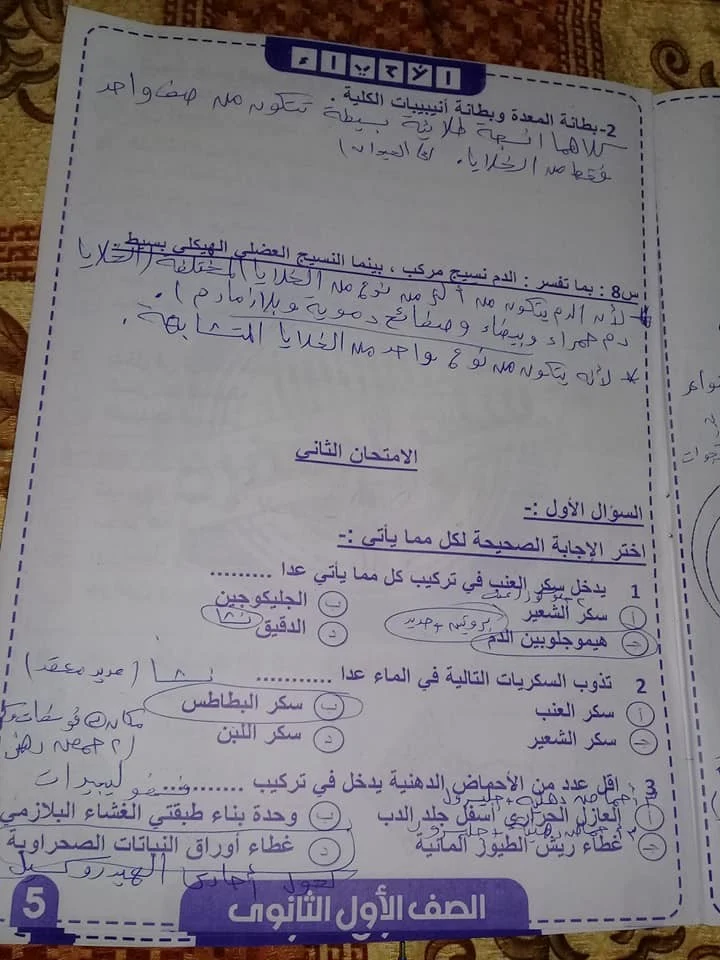 الأحياء
2-بطانة المعدة وبطانة أنيبيبات الكلية .
كلاهما انسجة طلائية بسيطة تتكون من صف واحد
فقط من الخلايا. (في الحيوان)
س8 : بما تفسر : الدم نسيج مركب ، بينما النسيج العضلي الهيكلي بسيط .
* لأن الدم يتكون من أكثر من نوع من الخلايا المختلفة (الخلايا
دم حمراء وبيضاء وصفائح دموية وبلازما دم).
* لأنه يتكون من نوع واحد من الخلايا المتشابهة.
الامتحان الثاني
السؤال الأول :-
اختر الإجابة الصحيحة لكل مما يأتى :-
1 يدخل سكر العنب في تركيب كل مما يأتي عدا .........
أ سكر الشعير
ب الجليكوجين
جـ هيموجلوبين الدم
بروتين + حديد
د الدقيق
نشا
2 تذوب السكريات التالية في الماء عدا ...........
نشا (عديد معقد)
أ سكر العنب
ب سكر البطاطس
جـ سكر الشعير
د سكر اللبن
3 اقل عدد من الأحماض الدهنية يدخل في تركيب ..........
فوسفوليبيدات
أ العازل الحراري أسفل جلد الدب
ب وحدة بناء طبقتي الغشاء البلازمي
جـ غطاء ريش الطيور المائية
د غطاء أوراق النباتات الصحراوية
كحول أحادى الهيدروكسيل
الصف الأول الثانوى
5